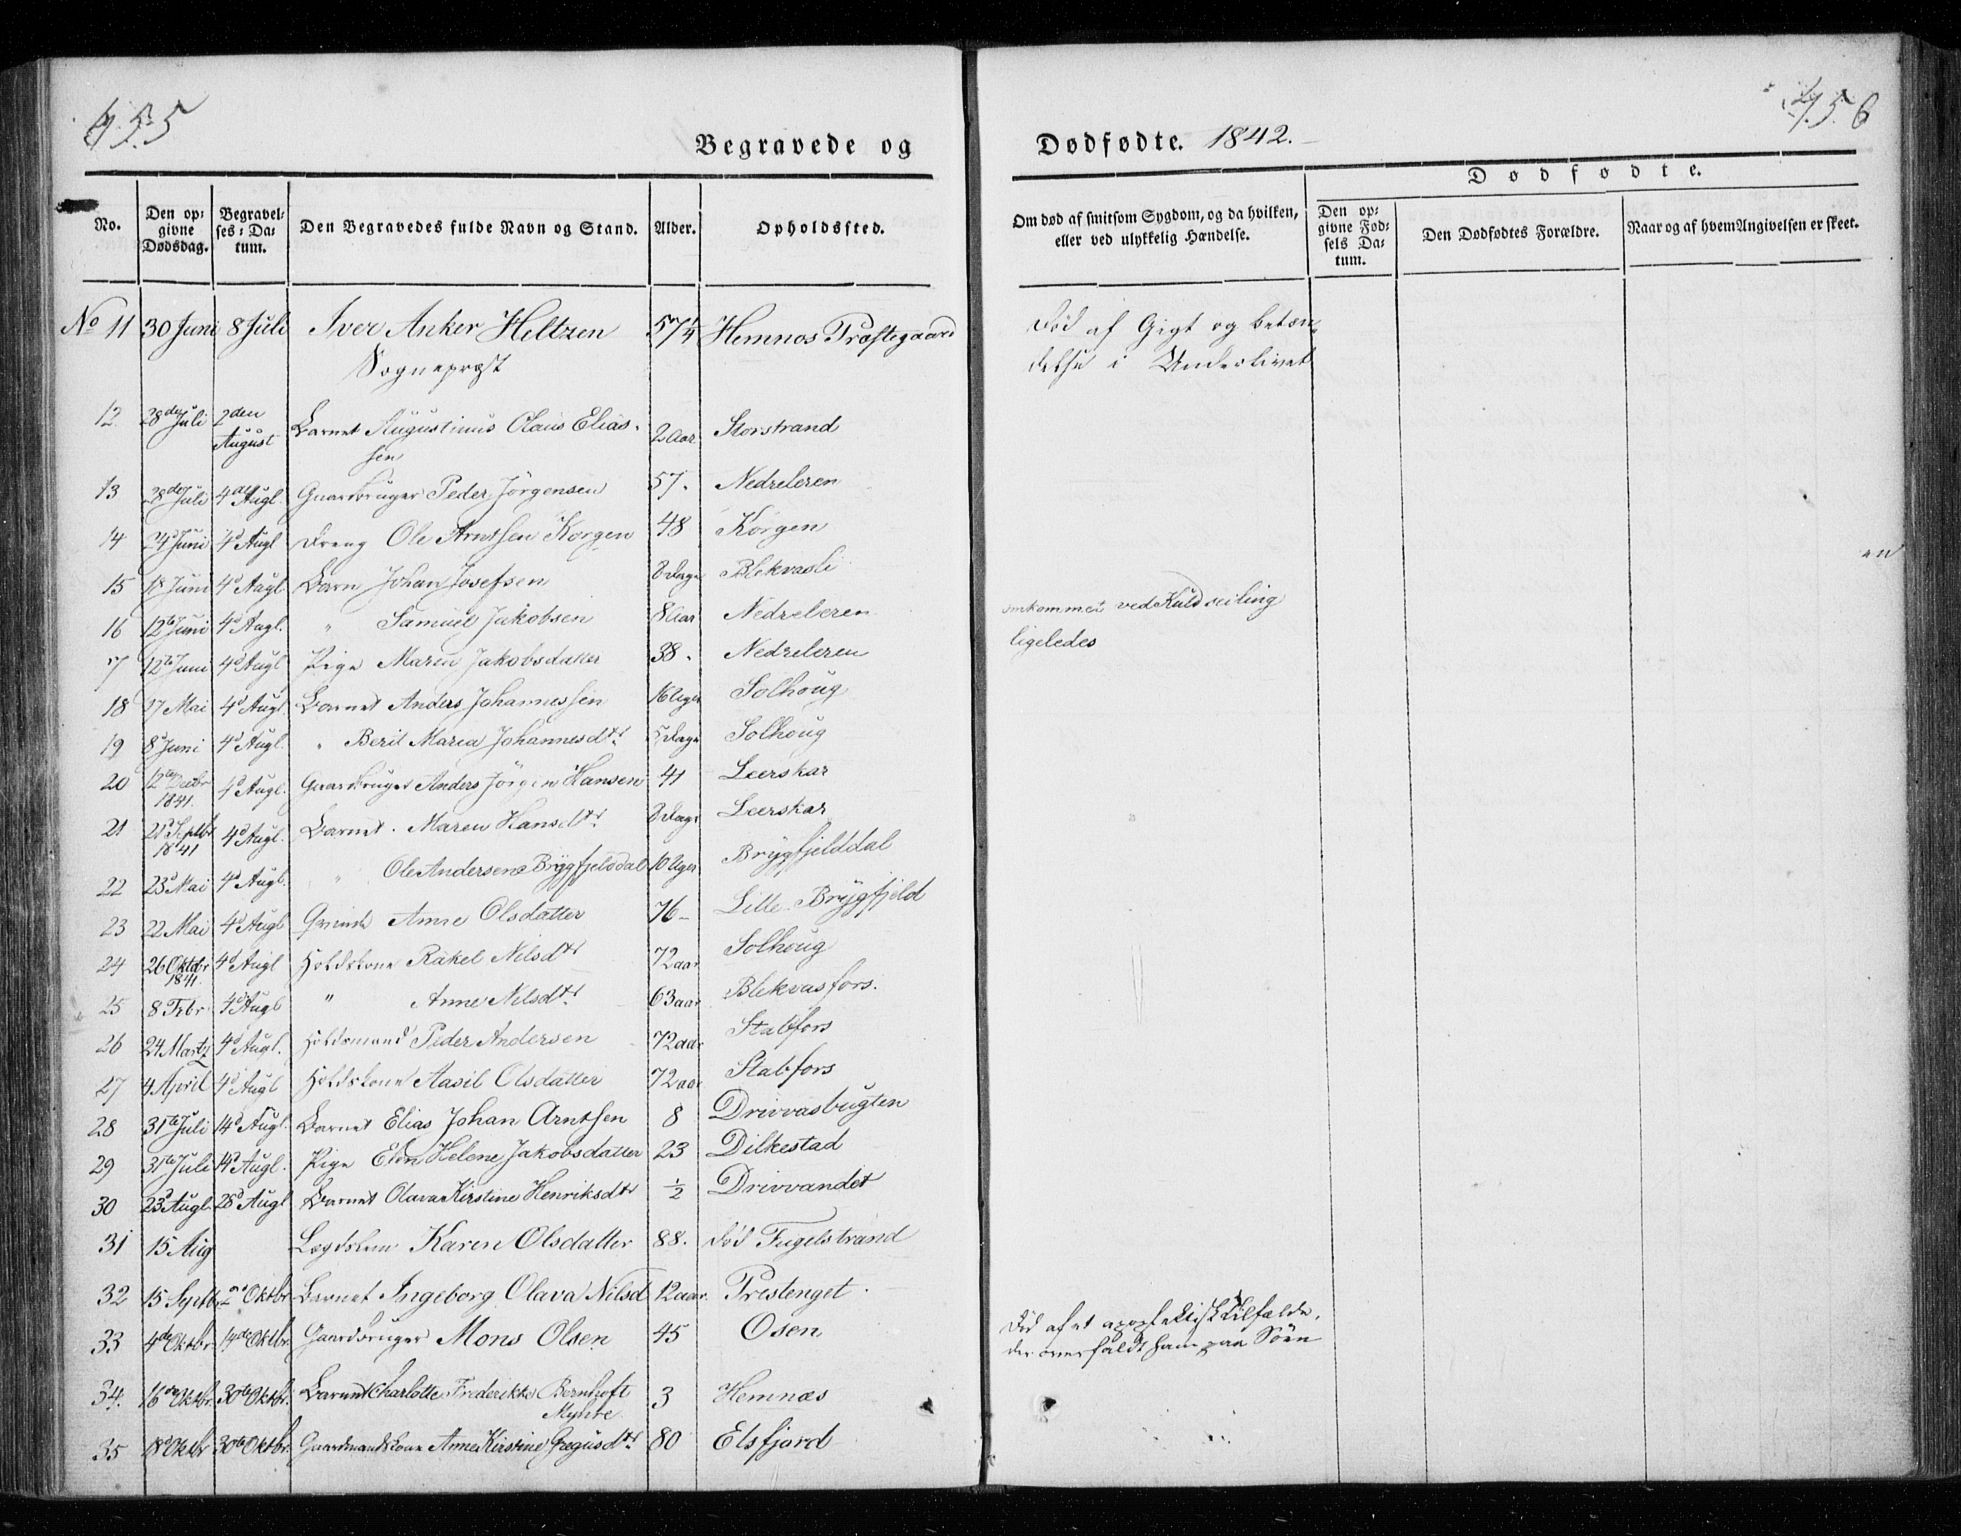 455
456
Begravede og
Dødfødte. 1842.
Dødfødte.
No.
Den op-
givne
Dødsdag.
Begravel-
ses-Da-
tum.
Den Begravedes fulde Navn og Stand.
Alder.
Opholdssted.
Om død af smitsom Sygdom, og da hvilken,
eller ved ulykkelig Hændelse.
Den op-
givne Fød-
sels Da-
tum.
Den Dødfødtes Forældre.
Naar og af hvem Angivelsen er skeet.
No 11 30 Juni 8 Juli Iver Anker Heltzen 57 Hemnæs Præstegaard Død af Gigt og betæn-
Sognepræst delse i Underlivet
12. 28de Juli 2den August Barnet Augustinus Olaus Elias- 2 Aar Storstrand
sen
13 28de Juli 4de Augt. Gaardbruger Peder Jörgensen 57. Nedreleren
14 24d Juni 4d Augt Dreng Ole Arntsen Korgen 48 Korgen
15 18 Juni 4d Augt Barn Johan Josefsen 8 Dage Blekvasli
16 12te Juni 4d Augt. " Samuel Jakobsen 8 Aar Nedreleren omkommet ved Kuldseiling
17 12te Juni 4d Augt Pige Maren Jakobsdatter 38. Nedreleren ligeledes
18 17 Mai 4d Augt. Barnet Anders Johannessen 16 Uger Solhoug
19 8d Juni 4d Augt. " Berit Maria Johannesdtr. 5 Dage Solhoug
20 12te Decbr 1841. 4d Augt. Gaardbruger Anders Jörgen Hansen 41 Leerskar
21 21d Septbr 1841 4d Augt. Barnet. Maren Hansdtr. 8 Dage Leerskar
22 23d Mai 4d Augt. " Ole Andersen Brygfjelddal 10 Uger Brygfjelddal
23 22 Mai 4d Augt Qvinde Anne Olsdatter 76 - Lille Brygfjeld
24 26 Oktbr 1841. 4d Augt Holdskone Rakel Nilsdtr 72 aar Solhoug
25 8 Febr 4d Augt " Anne Nilsdtr. 63 aar Blekvasfors.
26 24 Martz 4d Augt. Holdsmand Peder Andersen 72 aar Stabfors
27 4 April 4d Augt Holdskone Aasil Olsdatter 72 aar Stabfors
28 31te Juli 14d Augt. Barnet Elias Johan Arntsen 8 Drivvasbugten
29 31te Juli 14d Augt. Pige Elen Helene Jakobsdatter 23 Dilkestad
30 23d Augt. 28d Augt Barnet Olava Kirstine Henriksdtr ½ Drivvandet
31 15 Aug Lægdslem Karen Olsdatter 88. død Fugelstrand
32 15 Septb. 2d Oktbr Barnet Ingeborg Olava Nilsd 12 aar. Prestenget.
33 4de Oktbr 14de Oktbr. Gaardbruger Mons Olsen 45 Osen Död af et apoplektisk Tilfælde,
der overfaldt ham paa Söen
34. 16de Oktbr. 30te Oktbr. Barnet Charlotte Frederikke Bernhoft 3 Hemnæs
Myhre
35 18d Oktbr 30te Oktbr. Gaardmandskone Anne Kirstine Gregusdtr. 80 Elsfjord